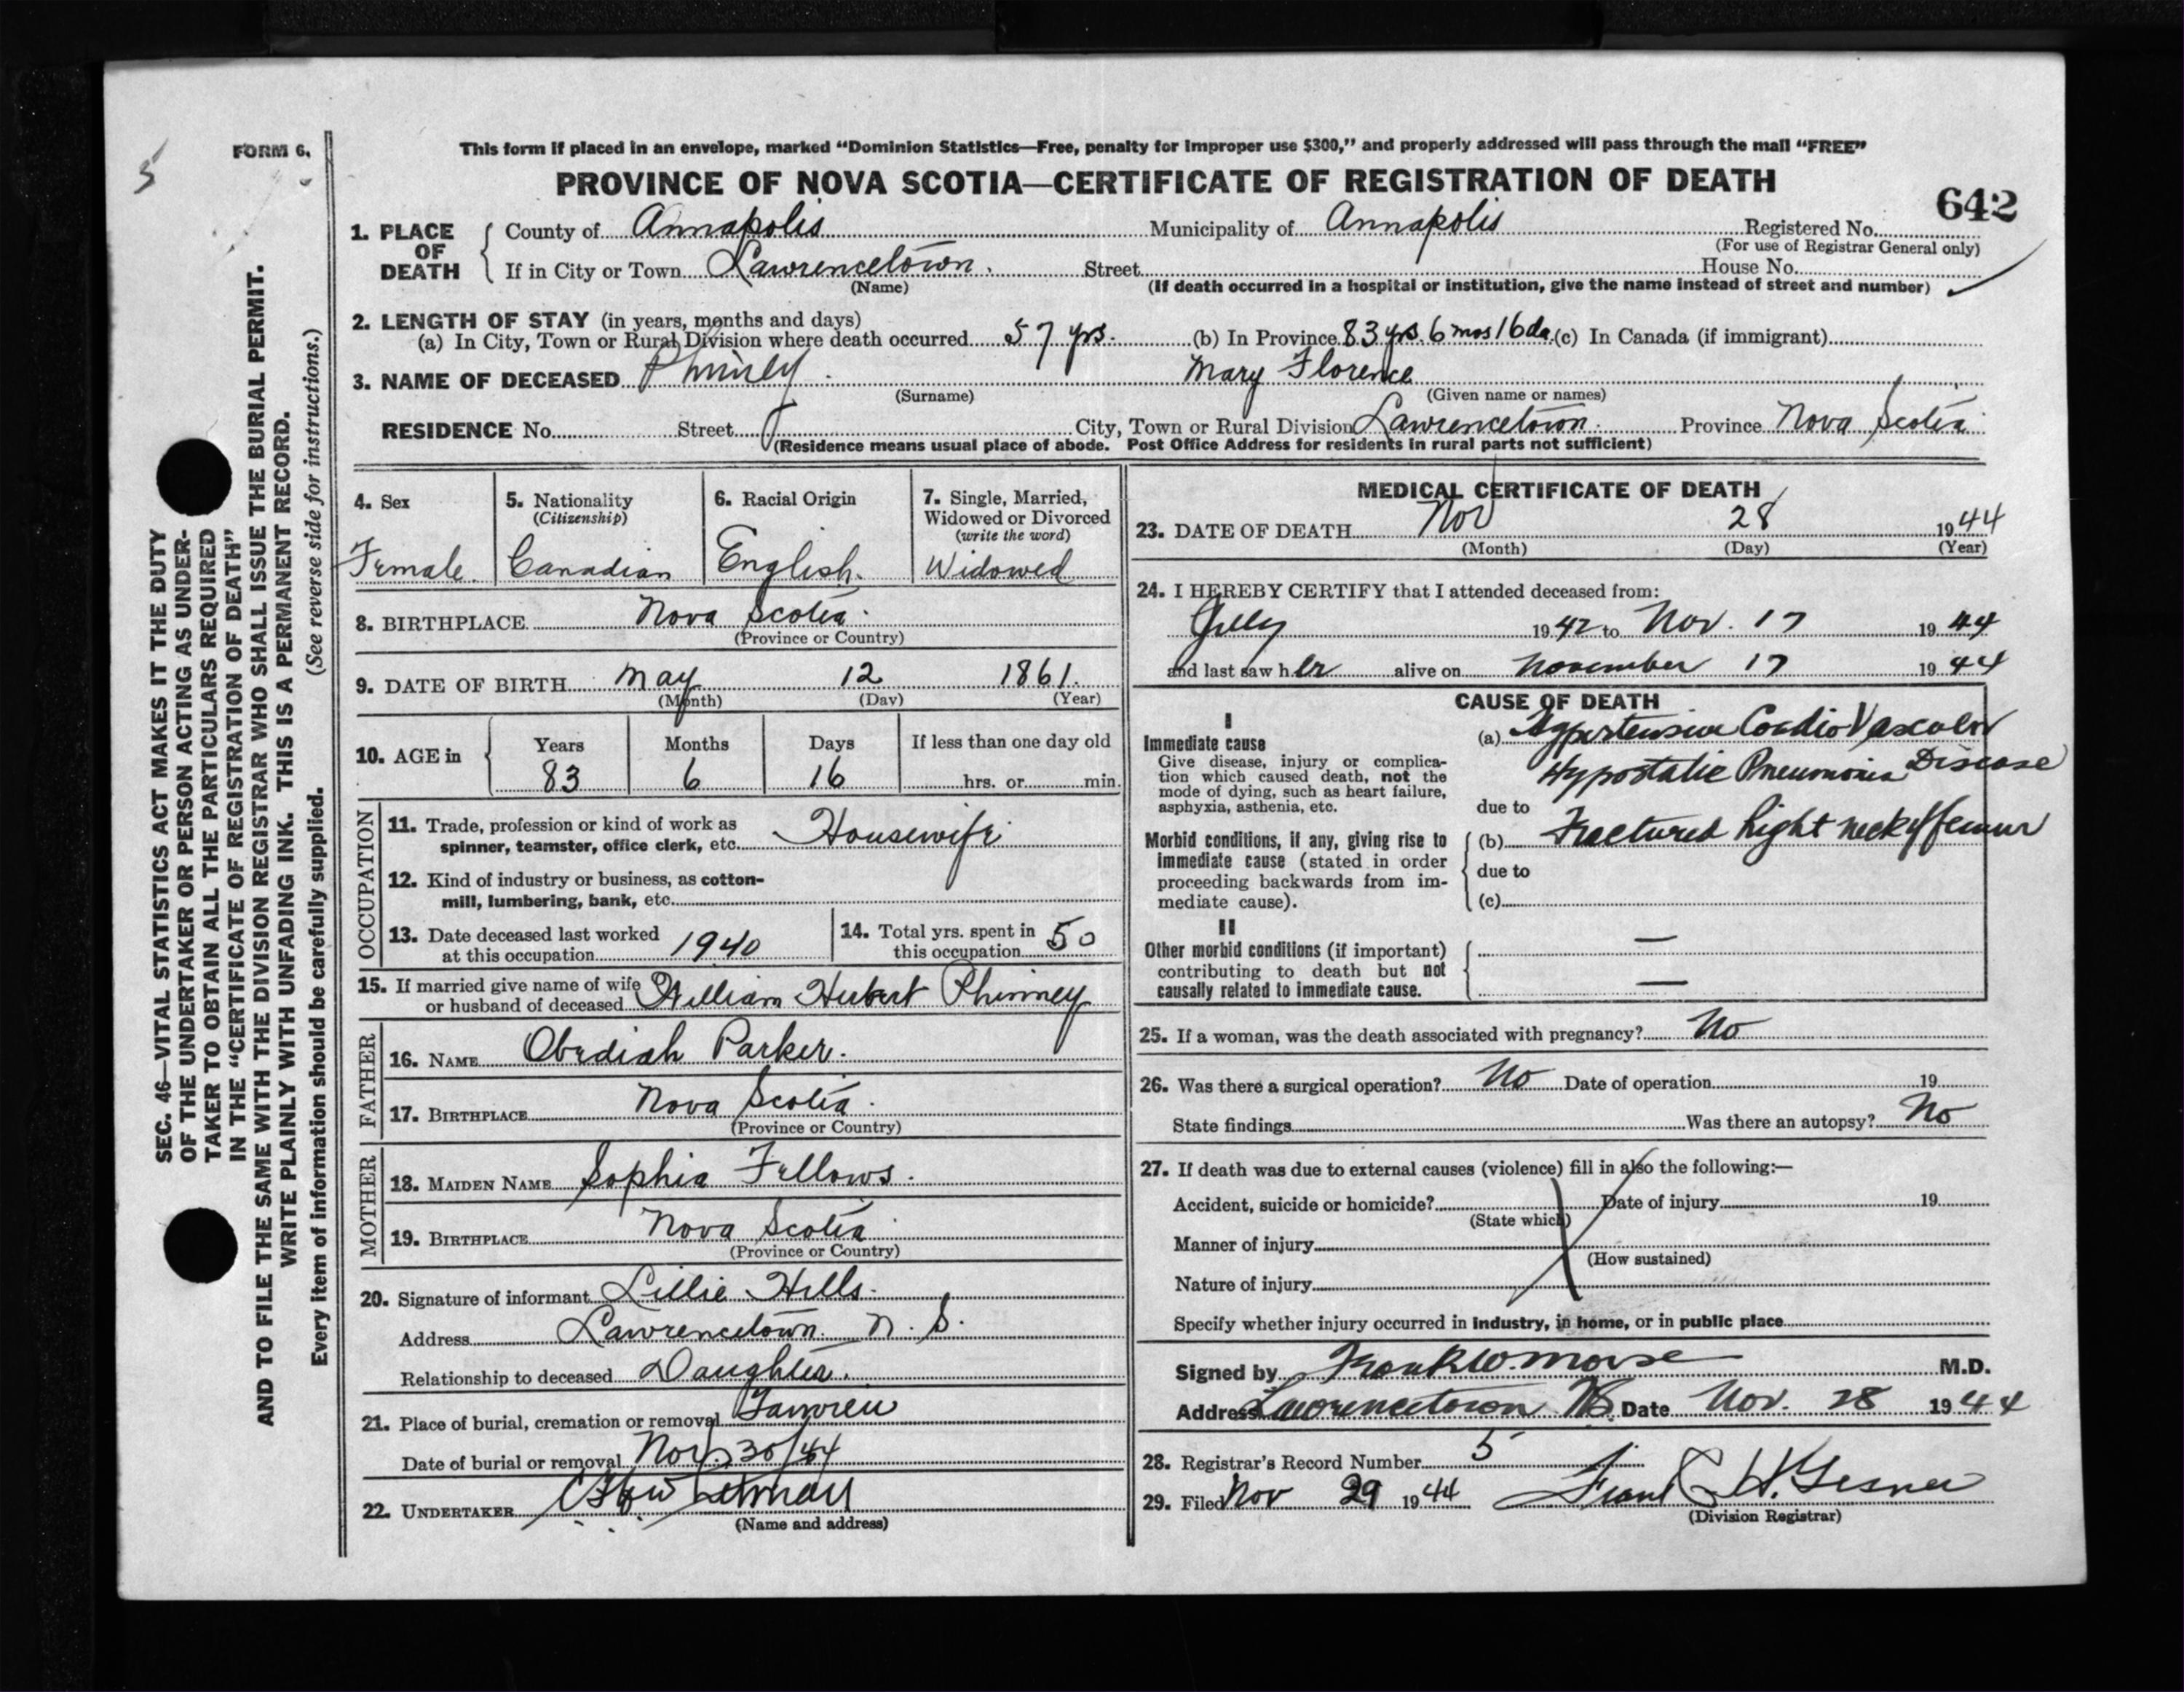 5
FORM 6.
This form if placed in an envelope, marked “Dominion Statistics—Free, penalty for improper use $300,” and properly addressed will pass through the mail “FREE”
PROVINCE OF NOVA SCOTIA—CERTIFICATE OF REGISTRATION OF DEATH
642
1. PLACE OF DEATH
County of Annapolis Municipality of Annapolis Registered No.
(For use of Registrar General only)
If in City or Town Lawrencetown. Street House No.
(Name) (If death occurred in a hospital or institution, give the name instead of street and number)
2. LENGTH OF STAY (in years, months and days)
(a) In City, Town or Rural Division where death occurred 57 yrs. (b) In Province 83 yrs. 6 mos 16 da. (c) In Canada (if immigrant)
3. NAME OF DECEASED Mary Florence
(Surname) (Given name or names)
RESIDENCE No. Street City, Town or Rural Division Lawrencetown. Province Nova Scotia
(Residence means usual place of abode. Post Office Address for residents in rural parts not sufficient)
4. Sex
Female.
5. Nationality
(Citizenship)
Canadian
6. Racial Origin
English.
7. Single, Married,
Widowed or Divorced
(write the word)
Widowed
8. BIRTHPLACE Nova Scotia.
(Province or Country)
9. DATE OF BIRTH May 12 1861.
(Month) (Day) (Year)
10. AGE in
Years Months Days If less than one day old
83 6 16 hrs. or min.
OCCUPATION
11. Trade, profession or kind of work as
spinner, teamster, office clerk, etc. Housewife
12. Kind of industry or business, as cotton-
mill, lumbering, bank, etc.
13. Date deceased last worked
at this occupation 1940
14. Total yrs. spent in
this occupation 50
15. If married give name of wife
or husband of deceased William Hubert Phinney
FATHER
16. NAME Obediah Parker.
17. BIRTHPLACE Nova Scotia.
(Province or Country)
MOTHER
18. MAIDEN NAME Sophia Fellows.
19. BIRTHPLACE Nova Scotia.
(Province or Country)
20. Signature of informant Lillie Hills.
Address Lawrencetown. N. S.
Relationship to deceased Daughter.
21. Place of burial, cremation or removal
Date of burial or removal Nov. 30/44
22. UNDERTAKER
(Name and address)
MEDICAL CERTIFICATE OF DEATH
23. DATE OF DEATH Nov 28 1944
(Month) (Day) (Year)
24. I HEREBY CERTIFY that I attended deceased from:
July 1942 to Nov. 17 1944
and last saw her alive on November 17 1944
CAUSE OF DEATH
I
Immediate cause
Give disease, injury or complica-
tion which caused death, not the
mode of dying, such as heart failure,
asphyxia, asthenia, etc.
(a) Hypertensive Cardio Vascular
Disease
Hypostatic Pneumonia
due to
Morbid conditions, if any, giving rise to
immediate cause (stated in order
proceeding backwards from im-
mediate cause).
(b) Fractured right neck of femur
due to
(c)
II
Other morbid conditions (if important)
contributing to death but not
causally related to immediate cause.
—
—
25. If a woman, was the death associated with pregnancy? No
26. Was there a surgical operation? No Date of operation 19
State findings Was there an autopsy? No
27. If death was due to external causes (violence) fill in also the following:—
Accident, suicide or homicide? Date of injury 19
(State which)
Manner of injury
(How sustained)
Nature of injury
Specify whether injury occurred in industry, in home, or in public place
Signed by Frank W. Morse M.D.
Address Lawrencetown NS. Date Nov. 28 1944
28. Registrar's Record Number 5
29. Filed Nov 29 1944 Frank H. Gesner
(Division Registrar)
SEC. 46—VITAL STATISTICS ACT MAKES IT THE DUTY
OF THE UNDERTAKER OR PERSON ACTING AS UNDER-
TAKER TO OBTAIN ALL THE PARTICULARS REQUIRED
IN THE “CERTIFICATE OF REGISTRATION OF DEATH”
AND TO FILE THE SAME WITH THE DIVISION REGISTRAR WHO SHALL ISSUE THE BURIAL PERMIT.
WRITE PLAINLY WITH UNFADING INK. THIS IS A PERMANENT RECORD.
Every item of information should be carefully supplied. (See reverse side for instructions.)